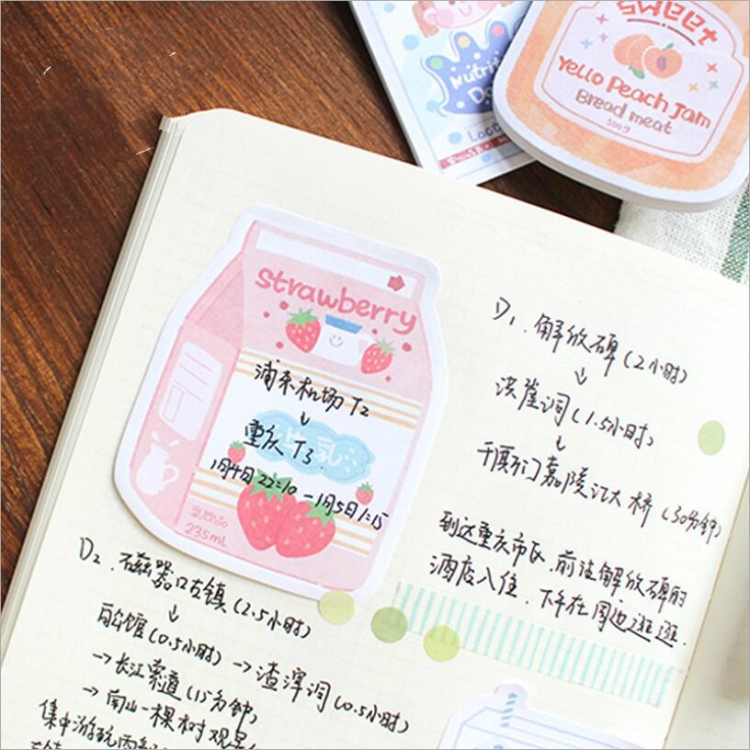 Nutrit
Lact
sweet
Yello Peach Jam
Bread meat
500g
strawberry
浦东机场 T2
↓
重庆 T3.
1月4日 22:10 - 1月5日 1:15
乳
235mL
D1. 解放碑 (2小时)
↓
洪崖洞 (1.5小时)
↓
千厮门嘉陵江大桥 (30分钟)
到达重庆市区, 前往解放碑的
酒店入住. 下午在周边逛逛.
D2. 石磁器口古镇 (2.5小时)
↓
白公馆 (0.5小时) → 渣滓洞 (0.5小时)
→ 长江索道 (15分钟)
→ 南山一棵树观景
集中游玩两